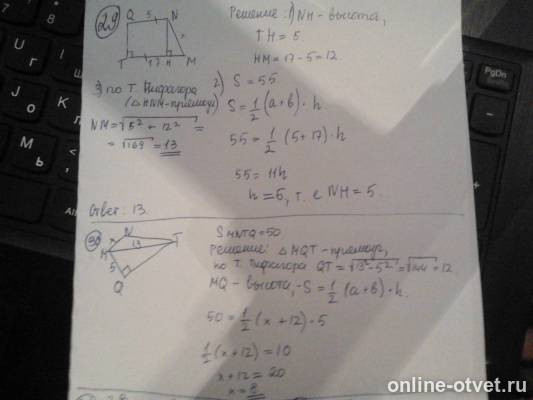 29
Q 5 N
T 17 H M
Решение: 1) NH - высота,
TH = 5.
HM = 17 - 5 = 12.
2) S = 55
S = 1/2 (a + b) · h
55 = 1/2 (5 + 17) · h
55 = 11h
h = 5, т. е NH = 5.
3) по т. Пифагора
(△HNM - прямоуг)
NM = √5² + 12² =
= √169 = 13
Ответ: 13.
30
N T
M 13
5
Q
S MNTQ = 50
Решение: △MQT - прямоуг,
по т. Пифагора QT = √13² - 5² = √144 = 12.
MQ - высота, S = 1/2 (a + b) · h.
50 = 1/2 (x + 12) · 5
1/2 (x + 12) = 10
x + 12 = 20
x = 8
PgDn
online-otvet.ru